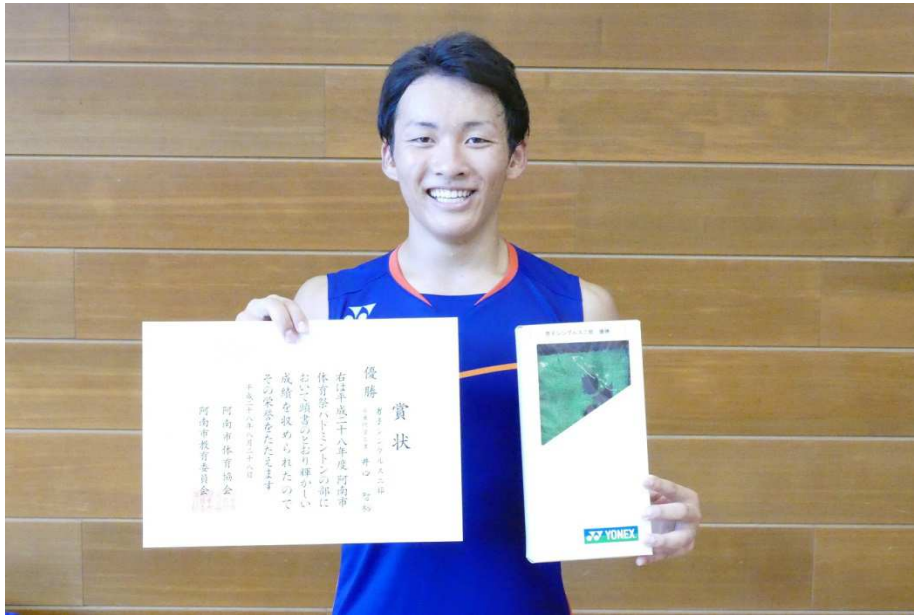 賞状
優勝
男子シングルス二部
右は平成二十八年度 阿南市
体育祭バドミントンの部に
おいて頭書のとおり輝かしい
成績を収められたので
その栄誉をたたえます
平成二十八年八月二十八日
阿南市体育協会
阿南市教育委員会
男子シングルス2部 優勝
YONEX